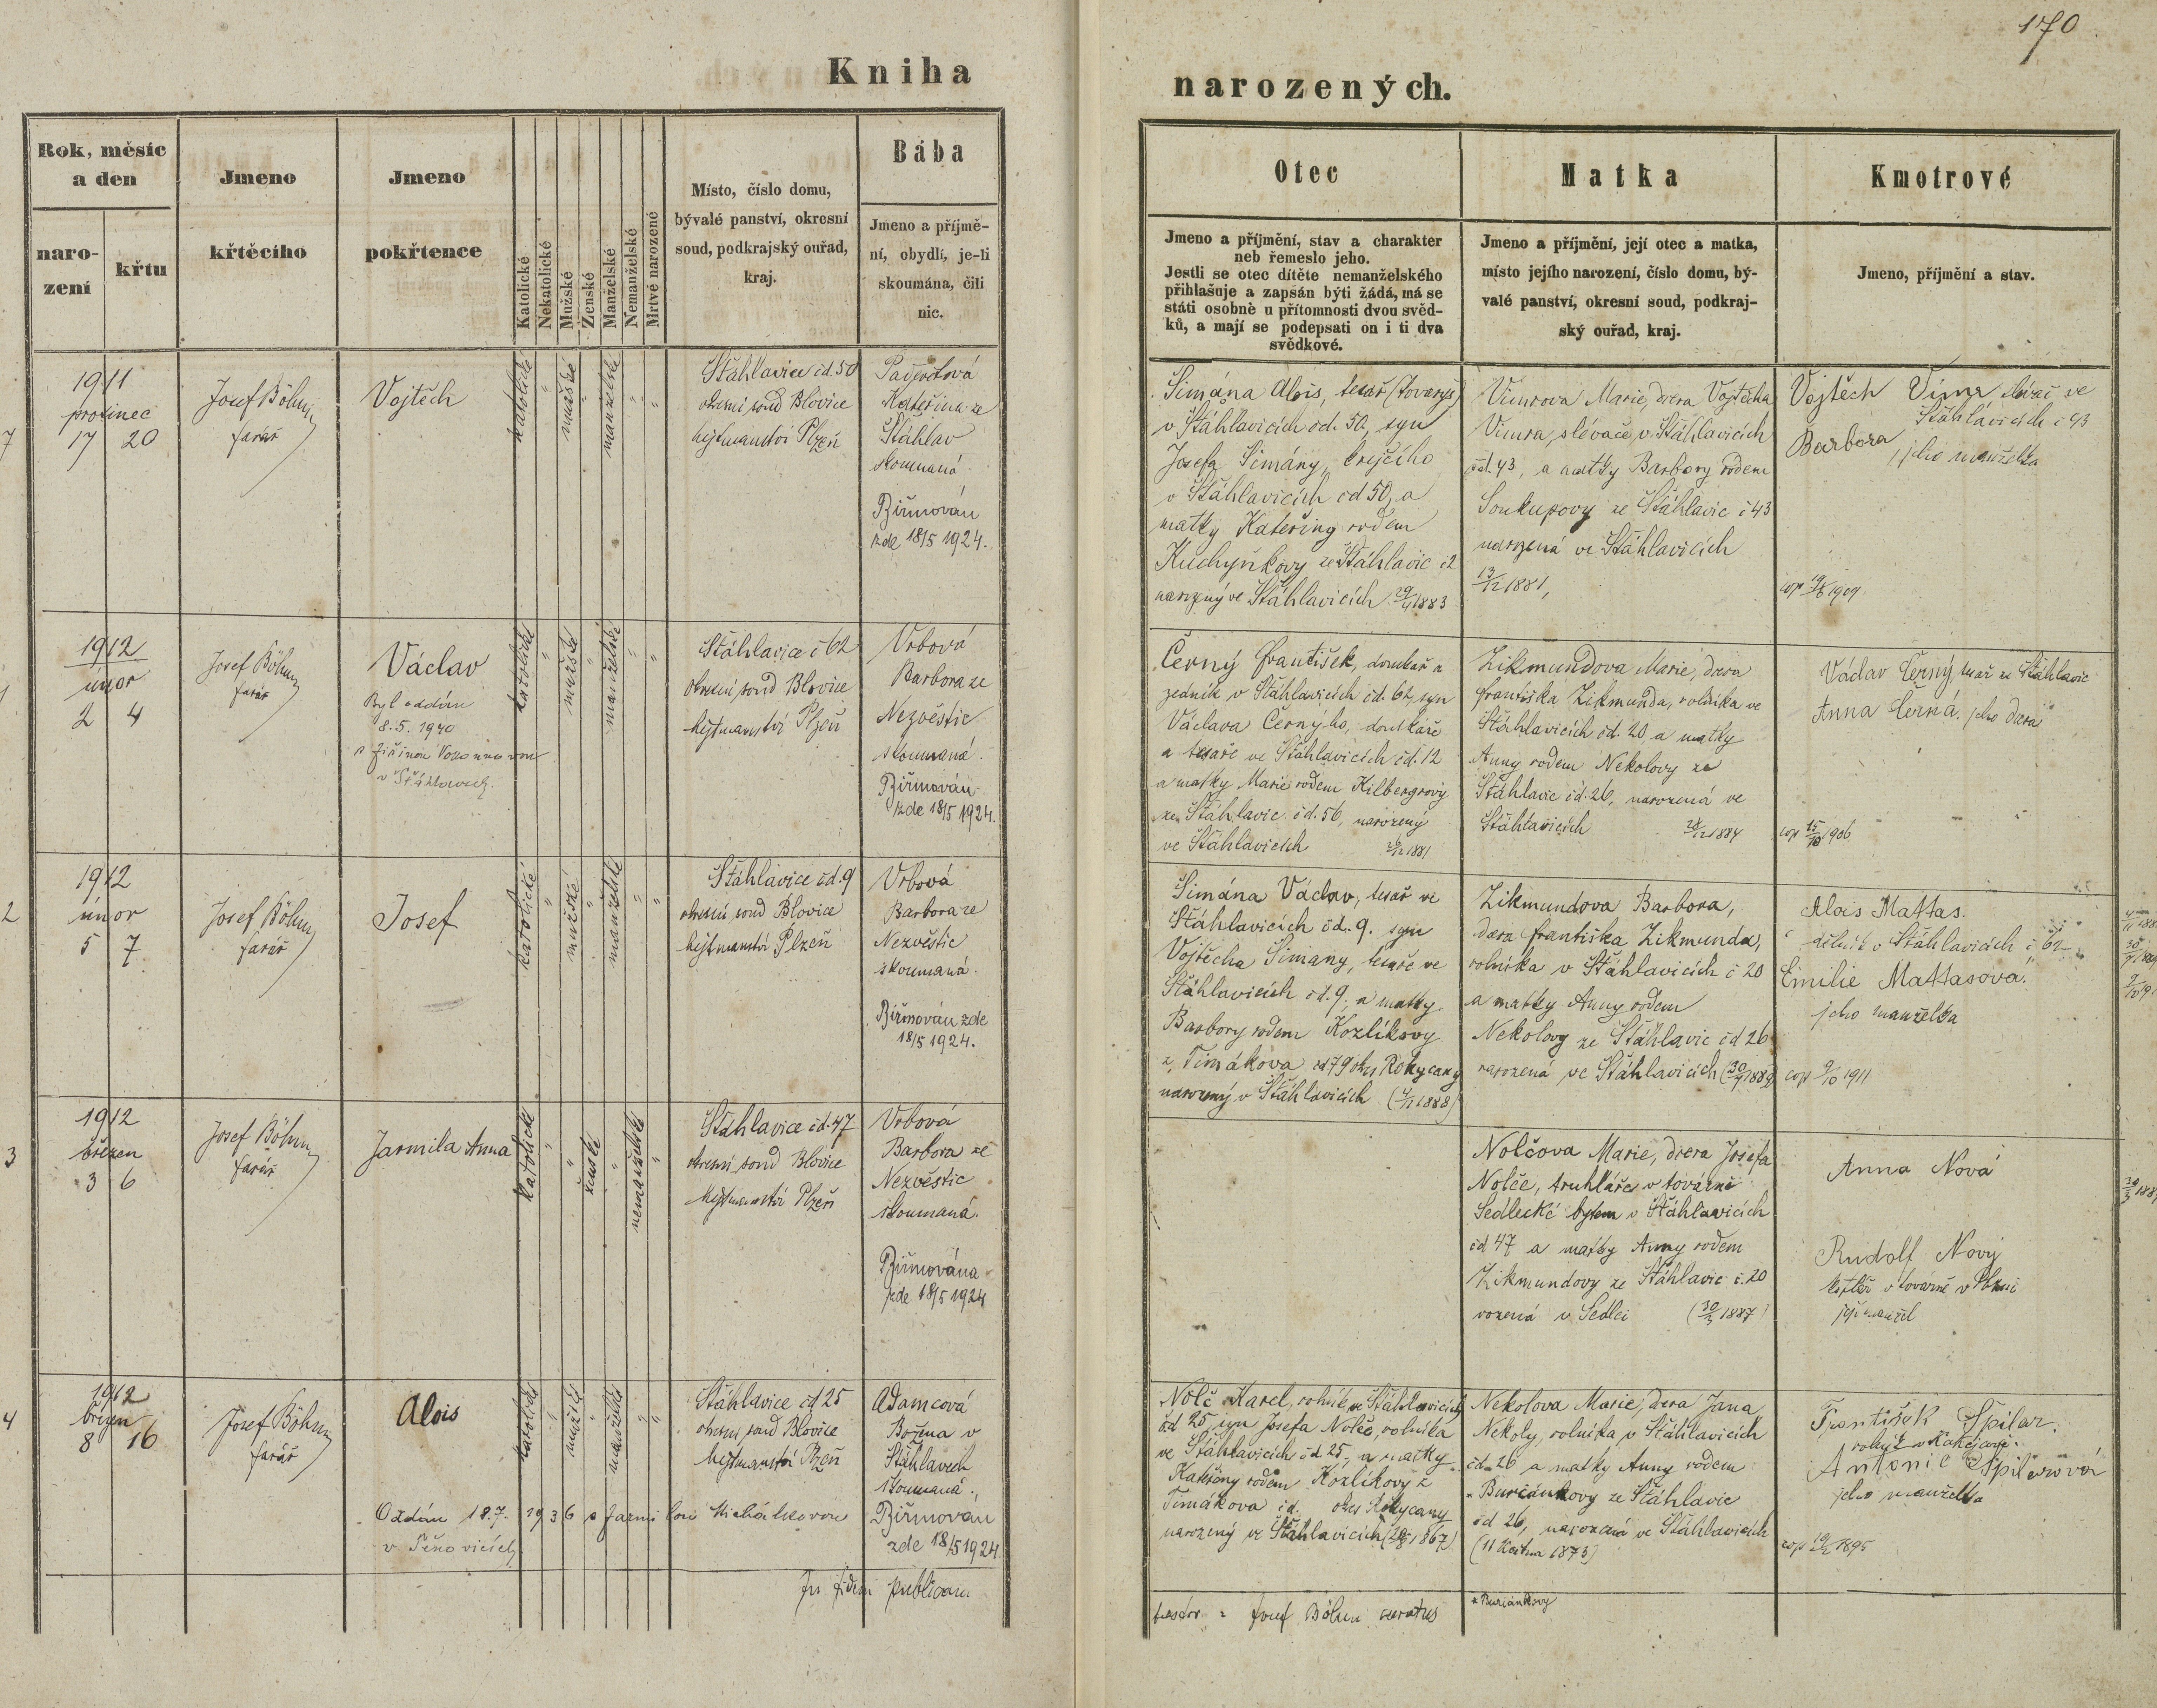 170
Kniha narozených.
Rok, měsíc
a den
naro-
zení
křtu
Jmeno
křtěcího
Jmeno
pokřtence
Katolické
Nekatolické
Mužské
Ženské
Manželské
Nemanželské
Mrtvě narozené
Místo, číslo domu,
bývalé panství, okresní
soud, podkrajský ouřad,
kraj.
Bába
Jmeno a příjmě-
ní, obydlí, je-li
skoumána, čili
nic.
Otec
Jmeno a příjmění, stav a charakter
neb řemeslo jeho.
Jestli se otec dítěte nemanželského
přihlašuje a zapsán býti žádá, má se
státi osobně u přítomnosti dvou svěd-
ků, a mají se podepsati on i ti dva
svědkové.
Matka
Jmeno a příjmění, její otec a matka,
místo jejího narození, číslo domu, bý-
valé panství, okresní soud, podkraj-
ský ouřad, kraj.
Kmotrové
Jmeno, příjmění a stav.
7
1911
prosinec
17 20
Josef Böhm
farář
Vojtěch
katolické
"
mužské
"
manželské
"
"
Šťáhlavice čd. 50
okresní soud Blovice
hejtmanství Plzeň
Kateřina ze
Šťáhlav
skoumaná.
Biřmován
zde 18/5 1924.
Šimána Alois, tesař (tovaryš)
v Šťáhlavicích čd. 50, syn
Josefa Šimány, krejčího
v Šťáhlavicích čd 50, a
matky Kateřiny rodem
Kuchyňkovy ze Šťáhlavic č2
narozený ve Šťáhlavicích 29/4 1883
Vimrova Marie, dcera Vojtěcha
Vimra, slévače v Šťáhlavicích
čd. 43, a matky Barbory rodem
Soukupovy ze Šťáhlavic č 43
narozená ve Šťáhlavicích
13/12 1881,
Vojtěch Vimr, slévač ve
Šťáhlavicích č 43
Barbora, jeho manželka
1
1912
únor
2 4
Josef Böhm
farář
Václav
Byl oddán
8. 5. 1940
v Šťáhlavech.
katolické
"
mužské
"
manželské
"
"
Šťáhlavice č 62
okresní soud Blovice
hejtmanství Plzeň
Vrbová
Barbora ze
Nezvěstic
skoumaná.
Biřmován
zde 18/5 1924.
Černý František, domkář a
zedník v Šťáhlavicích čd. 62, syn
Václava Černýho, domkáře
a tesaře ve Šťáhlavicích čd. 12
a matky Marie rodem Hilbergrovy
ze Šťáhlavic čd. 56, narozený
ve Šťáhlavicích 26/12 1881
Zikmundova Marie, dcera
Františka Zikmunda, rolníka ve
Šťáhlavicích čd. 20 a matky
Anny rodem Nekolovy ze
Šťáhlavic čd. 26, narozená ve
Šťáhlavicích 28/12 1884
Václav Černý, tesař ze Šťáhlavic
Anna Černá, jeho dcera
cop 15/10 1906
2
1912
únor
5 7
Josef Böhm
farář
Josef
katolické
"
mužské
"
manželské
"
"
Šťáhlavice čd. 9
okresní soud Blovice
hejtmanství Plzeň
Vrbová
Barbora ze
Nezvěstic
skoumaná.
Biřmován zde
18/5 1924.
Šimána Václav, tesař ve
Šťáhlavicích čd. 9. syn
Vojtěcha Šimany, tesaře ve
Šťáhlavicích čd. 9. a matky
Barbory rodem Kozlíkovy
z Timákova čd 79 okres Rokycany
narozený v Šťáhlavicích
Zikmundova Barbora,
dcera Františka Zikmunda,
rolníka v Šťáhlavicích č 20
a matky Anny rodem
Nekolovy ze Šťáhlavic čd 26
narozená ve Šťáhlavicích (30/7 1889)
Alois Mattas.
dělník v Šťáhlavicích č 62
Emilie Mattasova.
jeho manželka
cop 9/10 1911
3
1912
březen
3 6
Josef Böhm
farář
Jarmila Anna
katolické
"
"
ženské
"
nemanželské
"
Šťáhlavice čd. 47
okresní soud Blovice
hejtmanství Plzeň
Vrbová
Barbora ze
Nezvěstic
skoumaná.
Biřmována
zde 18/5 1924
Nolčova Marie, dcera Josefa
Nolče, truhláře v továrně
Sedlecké bytem v Šťáhlavicích
čd 47 a matky Anny rodem
Zikmundovy ze Šťáhlavic č. 20
rozená v Sedlci (30/3 1887)
Anna Nová
Rudolf Nový
její manžel
4
1912
březen
8 16
Josef Böhm
farář
Alois
katolické
"
mužské
"
manželské
"
"
Šťáhlavice čd 25
okresní soud Blovice
hejtmanství Plzeň
Adamcová
Božena v
Šťáhlavech
skoumaná.
Biřmován
zde 18/5 1924
Oddán 18.7. 1936 s Jarmilou Michálkovou
v Těnovicích
Nolč Karel, rolník ve Šťáhlavicích
čd 25, syn Josefa Nolče, rolníka
ve Šťáhlavicích čd 25, a matky
Kateřiny rodem Kozlíkovy z
Timákova čd. okres Rokycany
narozený ve Šťáhlavicích
Nekolova Marie, dcera Jana
Nekoly, rolníka v Šťáhlavicích
čd. 26 a matky Anny rodem
* Buriánkovy ze Šťáhlavic
čd 26, narozená ve Šťáhlavicích
(11 Května 1873)
František Špilar.
Antonie Špilarová
jeho manželka
In fidem publicam
testor: Josef Böhm curatus
* Buriánkovy